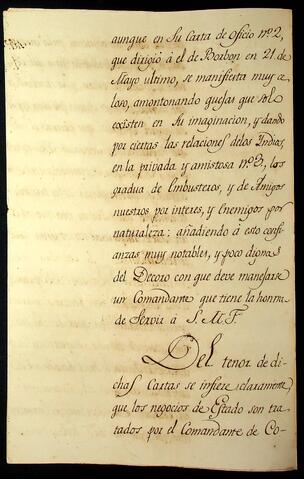 aunque en Su Carta de oficio nº 2,
que dirigió á el de Borbon en 21 de
Mayo ultimo, se manifiesta muy ce-
loso, amontonando quejas que solo
existen en Su imaginacion, y dando
por ciertas las relaciones delos Indios,
en la privada y amistosa nº 3, los
gradua de Embusteros, y de Amigos
nuestros por interes, y Enemigos por
naturaleza: añadiendo á esto confi-
anzas muy notables, y poco dignas
del Decoro con que deve manejarse
un Comandante que tiene la honrra
de Servir á S. M. F.
Del tenor de di-
chas Cartas se infiere claramente,
que los negocios de Estado son tra-
tados por el Comandante de Co-